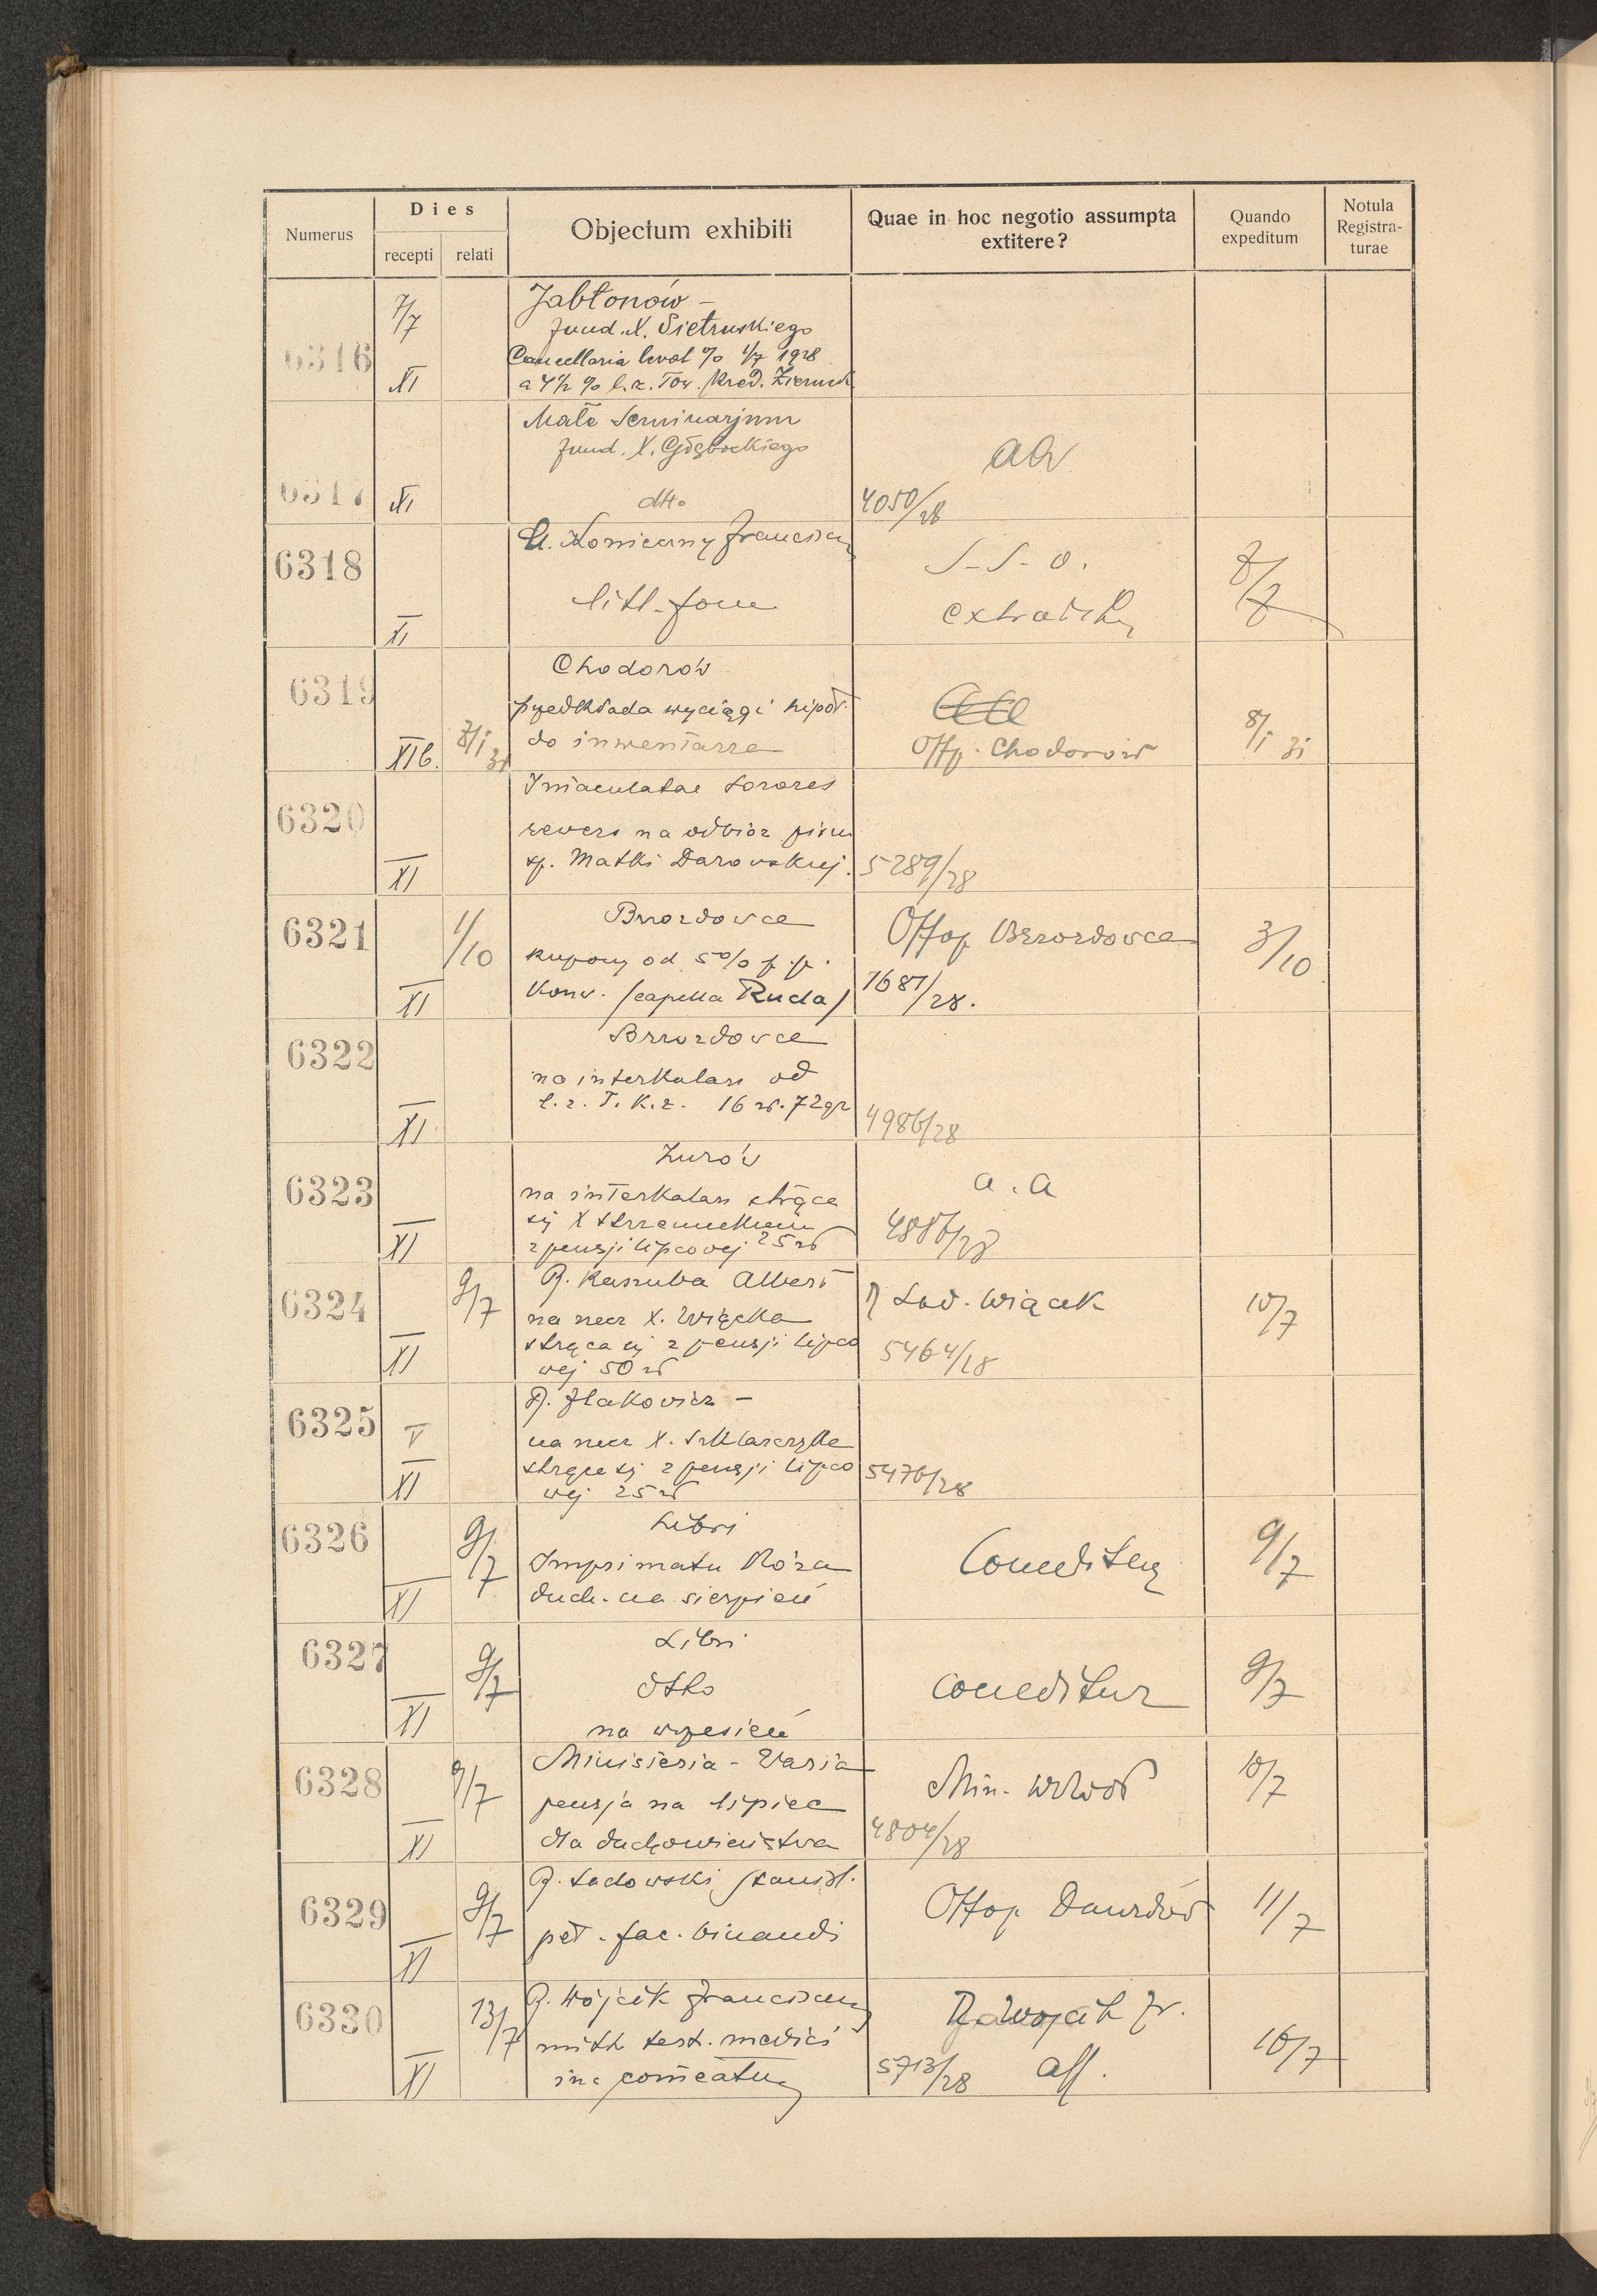 Numerus
Dies
recepti relati
Objectum exhibiti
Quae in hoc negotio assumpta
extitere?
Quando
expeditum
Notula
Registra-
turae
6316
7/7
XI
Jabłonów -
fund. X. Pietruskiego
Cancellaria levat % 1/7 1928
a 4½ % l. z. Tow. Kred. Ziemsk
6317
XI
Małe Seminarjum
fund. X. Głębockiego
dtto
aa
4050/28
6318
XI
Konieczny Franciscus
litt. form
S-S-O.
8/7
6319
XIb.
8/1 31
Chodorów
przedkłada wyciągi hipot.
do inwentarza
Offp. Chodorów
8/1 31
6320
XI
Imaculatae Sorores
rewers na odbiór pism
śp. Matki Darowskiej.
5289/28
6321
XI
1/10
Brzozdowce
kupony od 5% p. p.
Konw. (capella Ruda)
Offop Brzozdowce
1681/28.
3/10
6322
XI
Brzozdowce
na interkalarz od
l. z. T. K. z. 16 zł. 72 gr
4986/28
6323
XI
Żurów
na interkalarz strąca
się X
z pensji lipcowej 25 zł
a. a
4886/28
6324
XI
9/7
R. Kaszuba Albert
na rzecz X. Wiącka
strąca się z pensji lipco
wej 50 zł
Lad. Wiącek
5464/28
10/7
6325
V
XI
R. Ilakowicz -
na rzecz X. Szklarczyka
strąca się z pensji lipco
wej 25 zł
5476/28
6326
XI
9/7
Libri
Imprimatu Róża
duch. na sierpień
Conceditur
9/7
6327
XI
9/7
Libri
dtto
na wrzesień
conceditur
9/7
6328
XI
9/7
Ministeria - Varia
pensja na lipiec
dla duchowieństwa
Min.
4804/28
10/7
6329
XI
9/7
R. Sadowski Stanisł.
pet. fac. binandi
Offop Dawidów
11/7
6330
XI
13/7
R. Wójcik Franciscus
mitt test. medici
in comeatus
R. Wójcik Fr.
5713/28
16/7